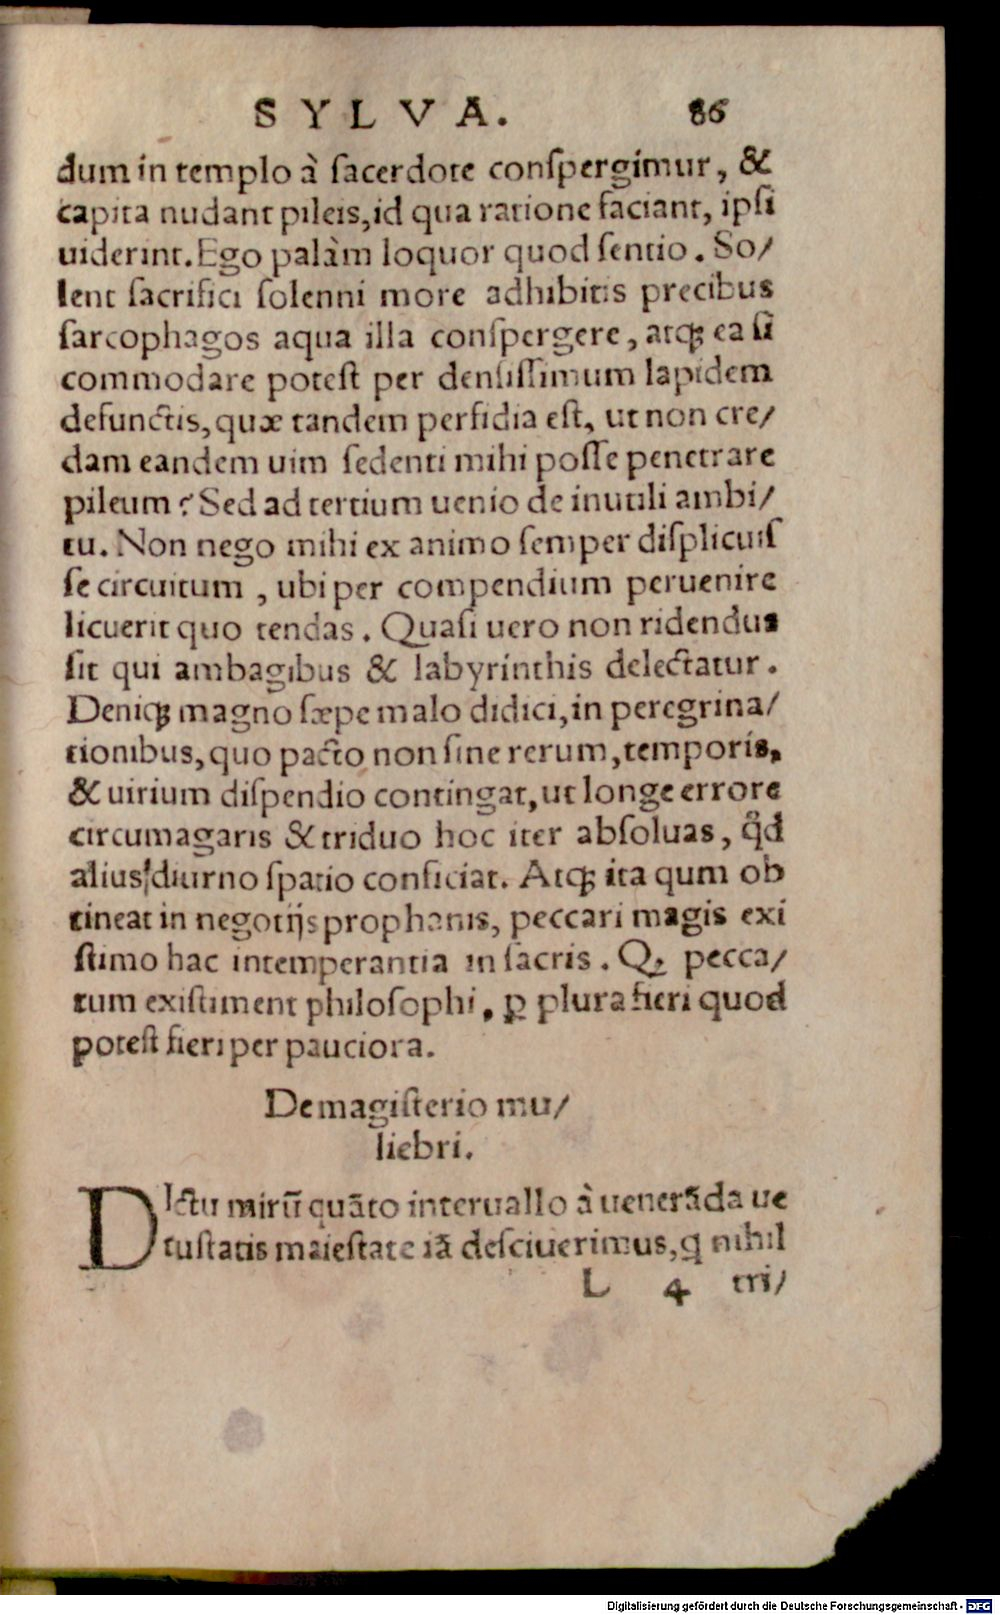 SYLVA. 86
dum in templo à ſacerdote conſpergimur, &
capita nudant pileis, id qua ratione faciant, ipſi
uiderint. Ego palàm loquor quod ſentio. So/
lent ſacrifici ſolenni more adhibitis precibus
ſarcophagos aqua illa conſpergere, atqꝫ ea ſi
commodare poteſt per denſiſſimum lapidem
defunctis, quæ tandem perfidia eſt, ut non cre/
dam eandem uim ſedenti mihi poſſe penetrare
pileum? Sed ad tertium uenio de inutili ambi/
tu. Non nego mihi ex animo ſemper diſplicuiſ
ſe circuitum, ubi per compendium peruenire
licuerit quo tendas. Quaſi uero non ridendus
ſit qui ambagibus & labyrinthis delectatur.
Deniqꝫ magno ſæpe malo didici, in peregrina/
tionibus, quo pacto non ſine rerum, temporis,
& uirium diſpendio contingat, ut longe errore
circumagaris & triduo hoc iter abſoluas, qd̃
alius diurno ſpatio conficiat. Atqꝫ ita qum ob
tineat in negotijs prophanis, peccari magis exi
ſtimo hac intemperantia in ſacris. Qꝫ pecca/
tum exiſtiment philoſophi, ꝑ plura fieri quod
poteſt fieri per pauciora.
De magiſterio mu/
liebri.
DIctu mirū quāto interuallo à uenerāda ue
tuſtatis maieſtate iā deſciuerimus, q nihil
L 4 tri/
Digitalisierung gefördert durch die Deutsche Forschungsgemeinschaft - DFG